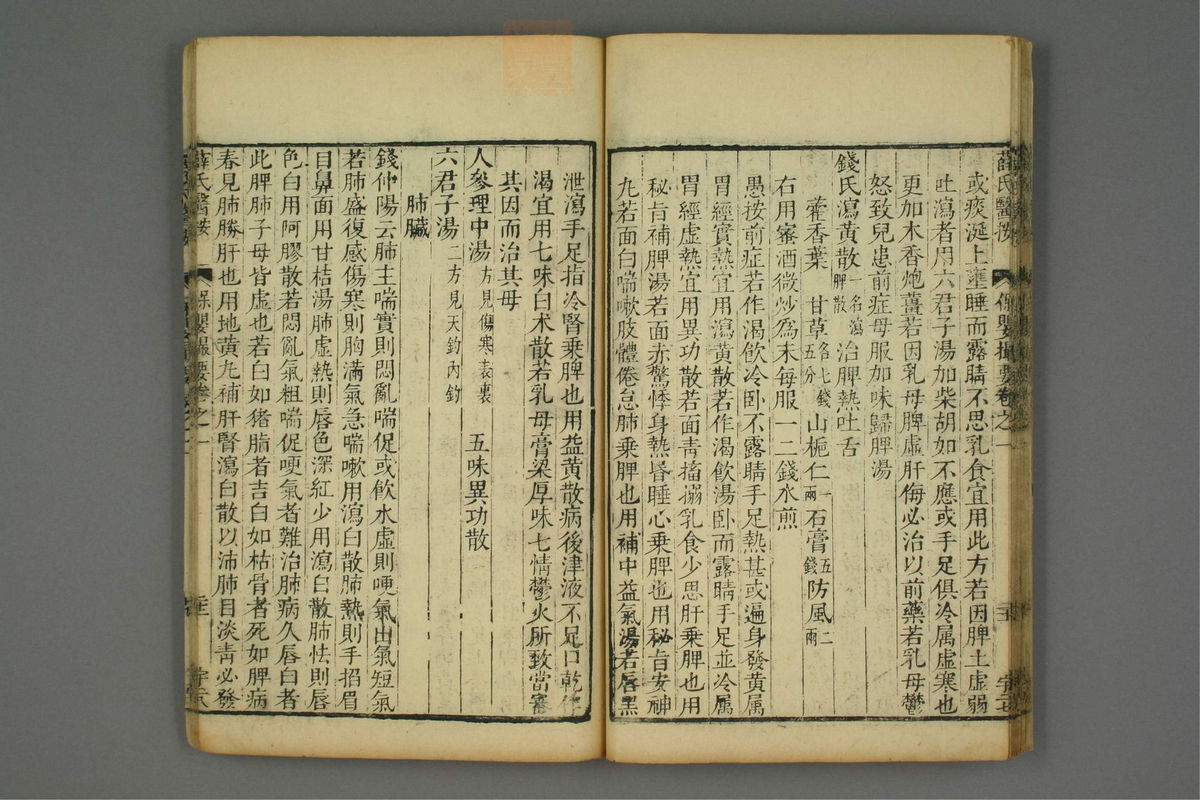 或痰涎上壅睡而露睛不思乳食宜用此方若因脾土虛弱
吐瀉者用六君子湯加柴胡如不應或手足俱冷属虛寒也
更加木香炮薑若因乳母脾虛肝侮必治以前藥若乳母鬱
怒致兒患前症母服加味歸脾湯
錢氏瀉黃散一名瀉脾散 治脾熱吐舌
藿香葉 甘草各七錢五分 山梔仁一兩 石膏五錢 防風二兩
右用蜜酒微炒爲末每服一二錢水煎
愚按前症若作渴飲冷卧不露睛手足熱甚或遍身發黃属
胃經實熱宜用瀉黃散若作渴飲湯卧而露睛手足並冷属
胃經虛熱宜用異功散若面青搐搦乳食少思肝乘脾也用
秘旨補脾湯若面赤驚悸身熱昏睡心乘脾也用秘旨安神
丸若面白喘嗽肢體倦怠肺乘脾也用補中益氣湯若唇黑
泄瀉手足指冷腎乘脾也用益黃散病後津液不足口乾作
渴宜用七味白术散若乳母膏粱厚味七情鬱火所致當審
其因而治其母
人參理中湯方見傷寒表裏 五味異功散
六君子湯二方見天釣內釣
肺臟
錢仲陽云肺主喘實則悶亂喘促或飲水虛則哽氣出氣短氣
若肺盛復感傷寒則胸滿氣急喘嗽用瀉白散肺熱則手掐眉
目鼻面用甘桔湯肺虛熱則唇色深紅少用瀉白散肺怯則唇
色白用阿膠散若悶亂氣粗喘促哽氣者難治肺病久唇白者
此脾肺子母皆虛也若白如猪脂者吉白如枯骨者死如脾病
春見肺勝肝也用地黃丸補肝腎瀉白散以沛肺目淡青必發
薛氏醫按 保嬰撮要卷之一
薛氏醫按 保嬰撮要卷之一